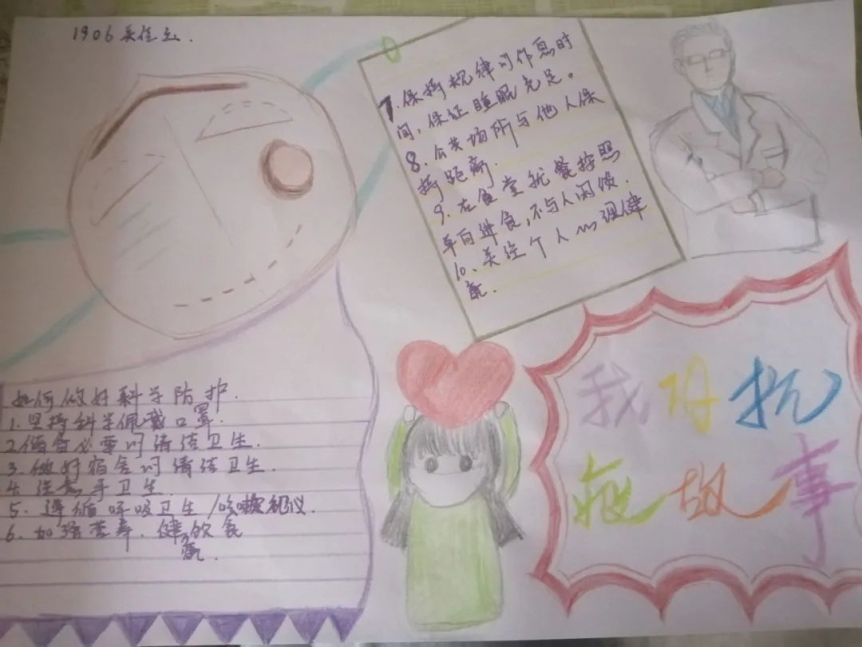 1906 关佳
7.保持规律的作息时
间，保证睡眠充足。
8.公共场所与他人保
持距离.
9.在食堂就餐按照
单向进食,不与人闲谈.
10.关注个人心理健
康.
如何做好科学防护.
1.坚持科学佩戴口罩.
2.储备必要的清洁卫生.
3.做好宿舍的清洁卫生.
4.注意手卫生
5.遵循呼吸卫生/咳嗽礼仪.
6.加强营养,健饮食
康.
我的抗
疫故事